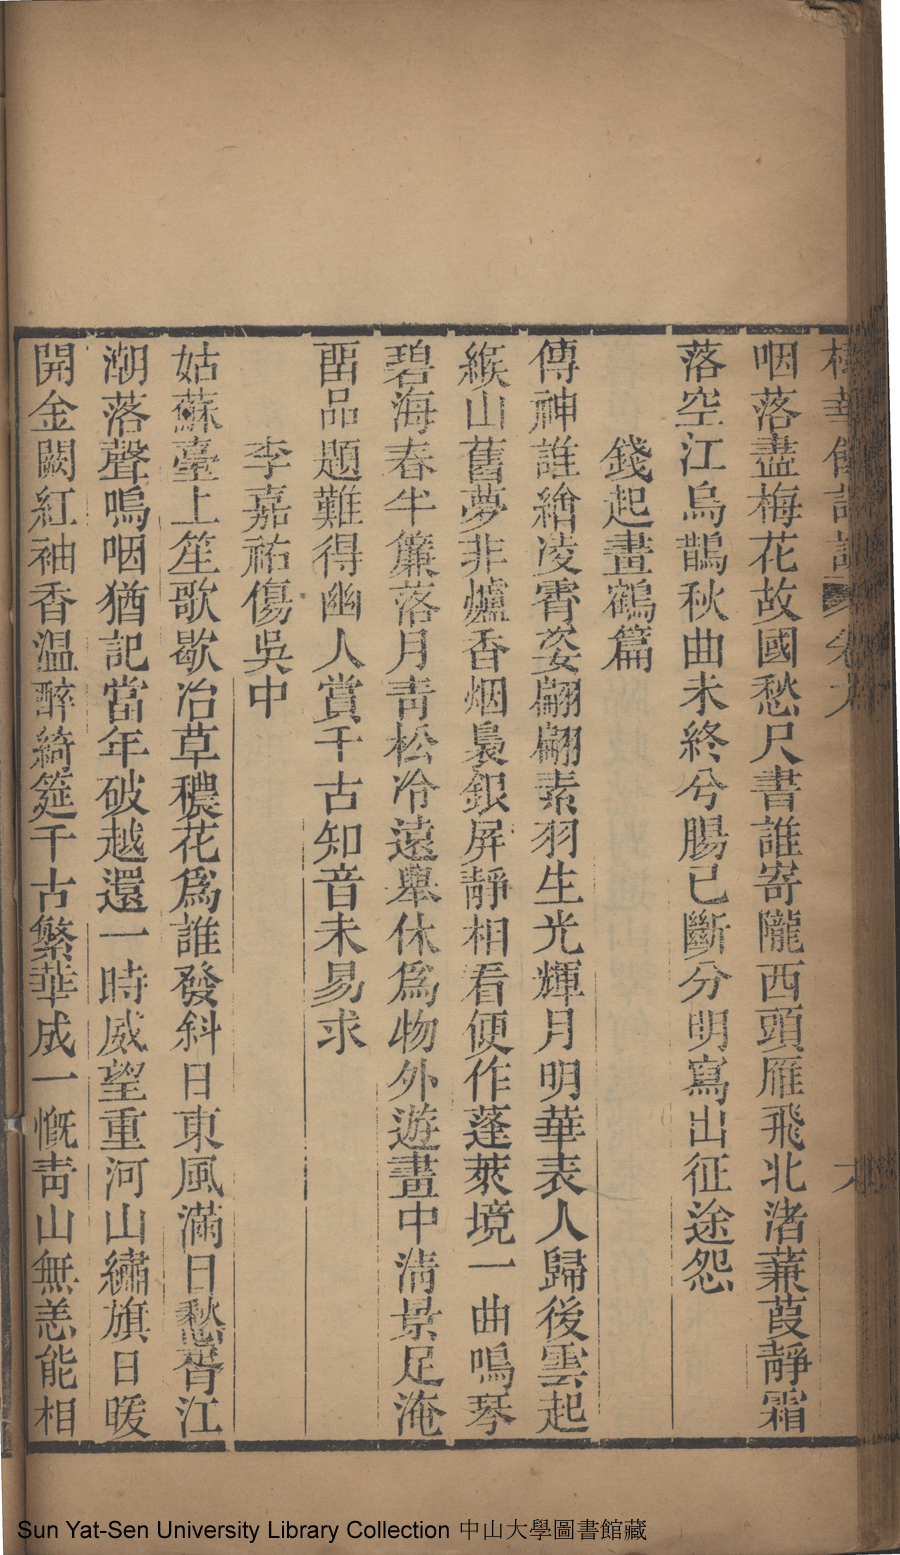 咽落盡梅花故國愁尺書誰寄隴西頭雁飛北渚蒹葭靜霜
落空江烏鵲秋曲未終兮腸已斷分明寫出征途怨
錢起畫鶴篇
傳神誰繪凌霄姿翩翩素羽生光輝月明華表人歸後雲起
緱山舊夢非爐香烟裊銀屏靜相看便作蓬萊境一曲鳴琴
碧海春半簾落月青松冷遠舉休為物外遊畫中淸景足淹
畱品題難得幽人賞千古知音未易求
李嘉祐傷吳中
姑蘇臺上笙歌歇冶草穠花為誰發斜日東風滿日愁胥江
潮落聲嗚咽猶記當年破越還一時威望重河山繡旗日暖
開金闕紅袖香温醉綺筵千古繁華成一慨靑山無恙能相
Sun Yat-Sen University Library Collection 中山大學圖書館藏